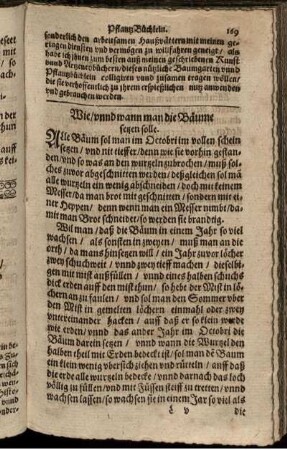 Pflantz Büchlein. 169
sonderlich den arbeitsamen Haußvättern mit meinen ge-
ringen diensten vnd vermögen zu willfahren geneigt / als
habe ich jnen zum besten auß meinen geschriebenen Kunst
vnnd Artzneybüchern / diesen nützliche Baumgarten vnnd
Pflantzbüchlein colligiren vnd zusamen tragen wöllen /
die sie verhoffentlich zu jhrem ersprießlichen nutz anwenden
vnd gebrauchen werden.
Wie / vnnd wann man die Bäume
setzen solle.
Alle Bäum sol man im Octobri im vollen schein
setzen / vnd nit tieffer / denn wie sie vorhin gestan-
den / vnd so was an den wurtzeln zubrochen / muß sol-
ches zuvor abgeschnitten werden / deßgleichen sol man
alle wurtzeln ein wenig abschneiden / doch mit keinem
Messer / da man brot mit geschnitten / sondern mit ei-
ner Heppen / denn wenn man ein Messer nimbt / da-
mit man Brot schneidet / so werden sie brandtig.
Wil man / daß die Bäum in einem Jahr so viel
wachsen / als sonsten in zweyen / muß man an die
orth / da mans hin setzen will / ein Jahr zuvor löcher
zwey schuch weit / vnnd zwey tieff machen / dieselbi-
gen mit mist außfüllen / vnnd eines halben schuchs
dick erden auff den mist thun / so hebt der Mist in lö-
chern an zu faulen / vnd sol man den Sommer vber
den Mist in gemelten löchern einmahl oder zwey
vntereinander hacken / auff daß er so klein werde
wie erden / vnnd das ander Jahr im Octobri die
Bäum darein setzen / vnnd wann die Wurtzel den
halben theil mit Erden bedeckt ist / sol man dē Baum
ein klein wenig vbersich ziehen vnd rütteln / auff daß
die erde alle wurtzeln bedecke / vnd darnach das loch
völlig zu füllen / vnd mit Füssen steiff zu tretten / vnd
wachsen lassen / so wachsen sie in einem Jar so viel als
v die